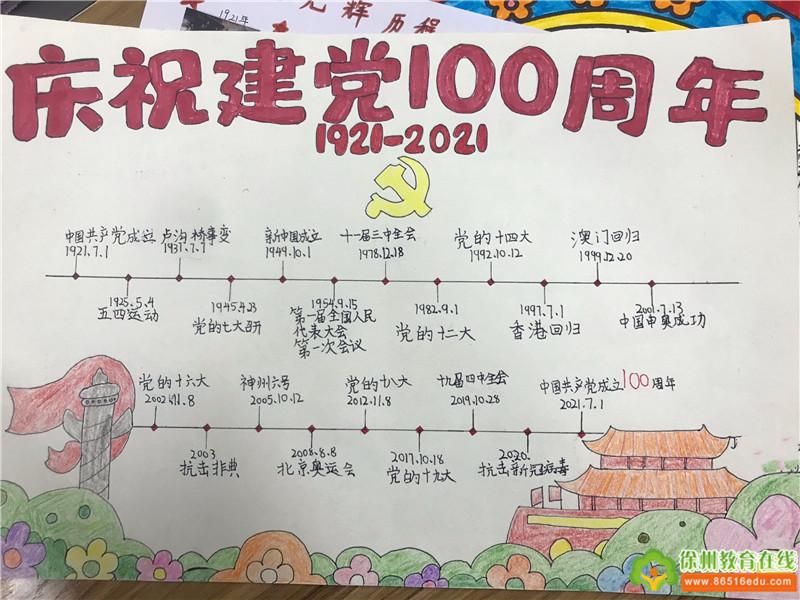 1921年
光辉历程
庆祝建党100周年
1921-2021
中国共产党成立
1921.7.1
卢沟桥事变
1937.7.7
新中国成立
1949.10.1
十一届三中全会
1978.12.18
党的十四大
1992.10.12
澳门回归
1999.12.20
1925.5.4
五四运动
1945.4.23
党的七大召开
1954.9.15
第一届全国人民
代表大会
第一次会议
1982.9.1
党的十二大
1997.7.1
香港回归
2001.7.13
中国申奥成功
党的十六大
2002.11.8
神州六号
2005.10.12
党的十八大
2012.11.8
十九届四中全会
2019.10.28
中国共产党成立100周年
2021.7.1
2003
抗击非典
2008.8.8
北京奥运会
2017.10.18
党的十九大
2020.
抗击新冠病毒
徐州教育在线
www.86516edu.com